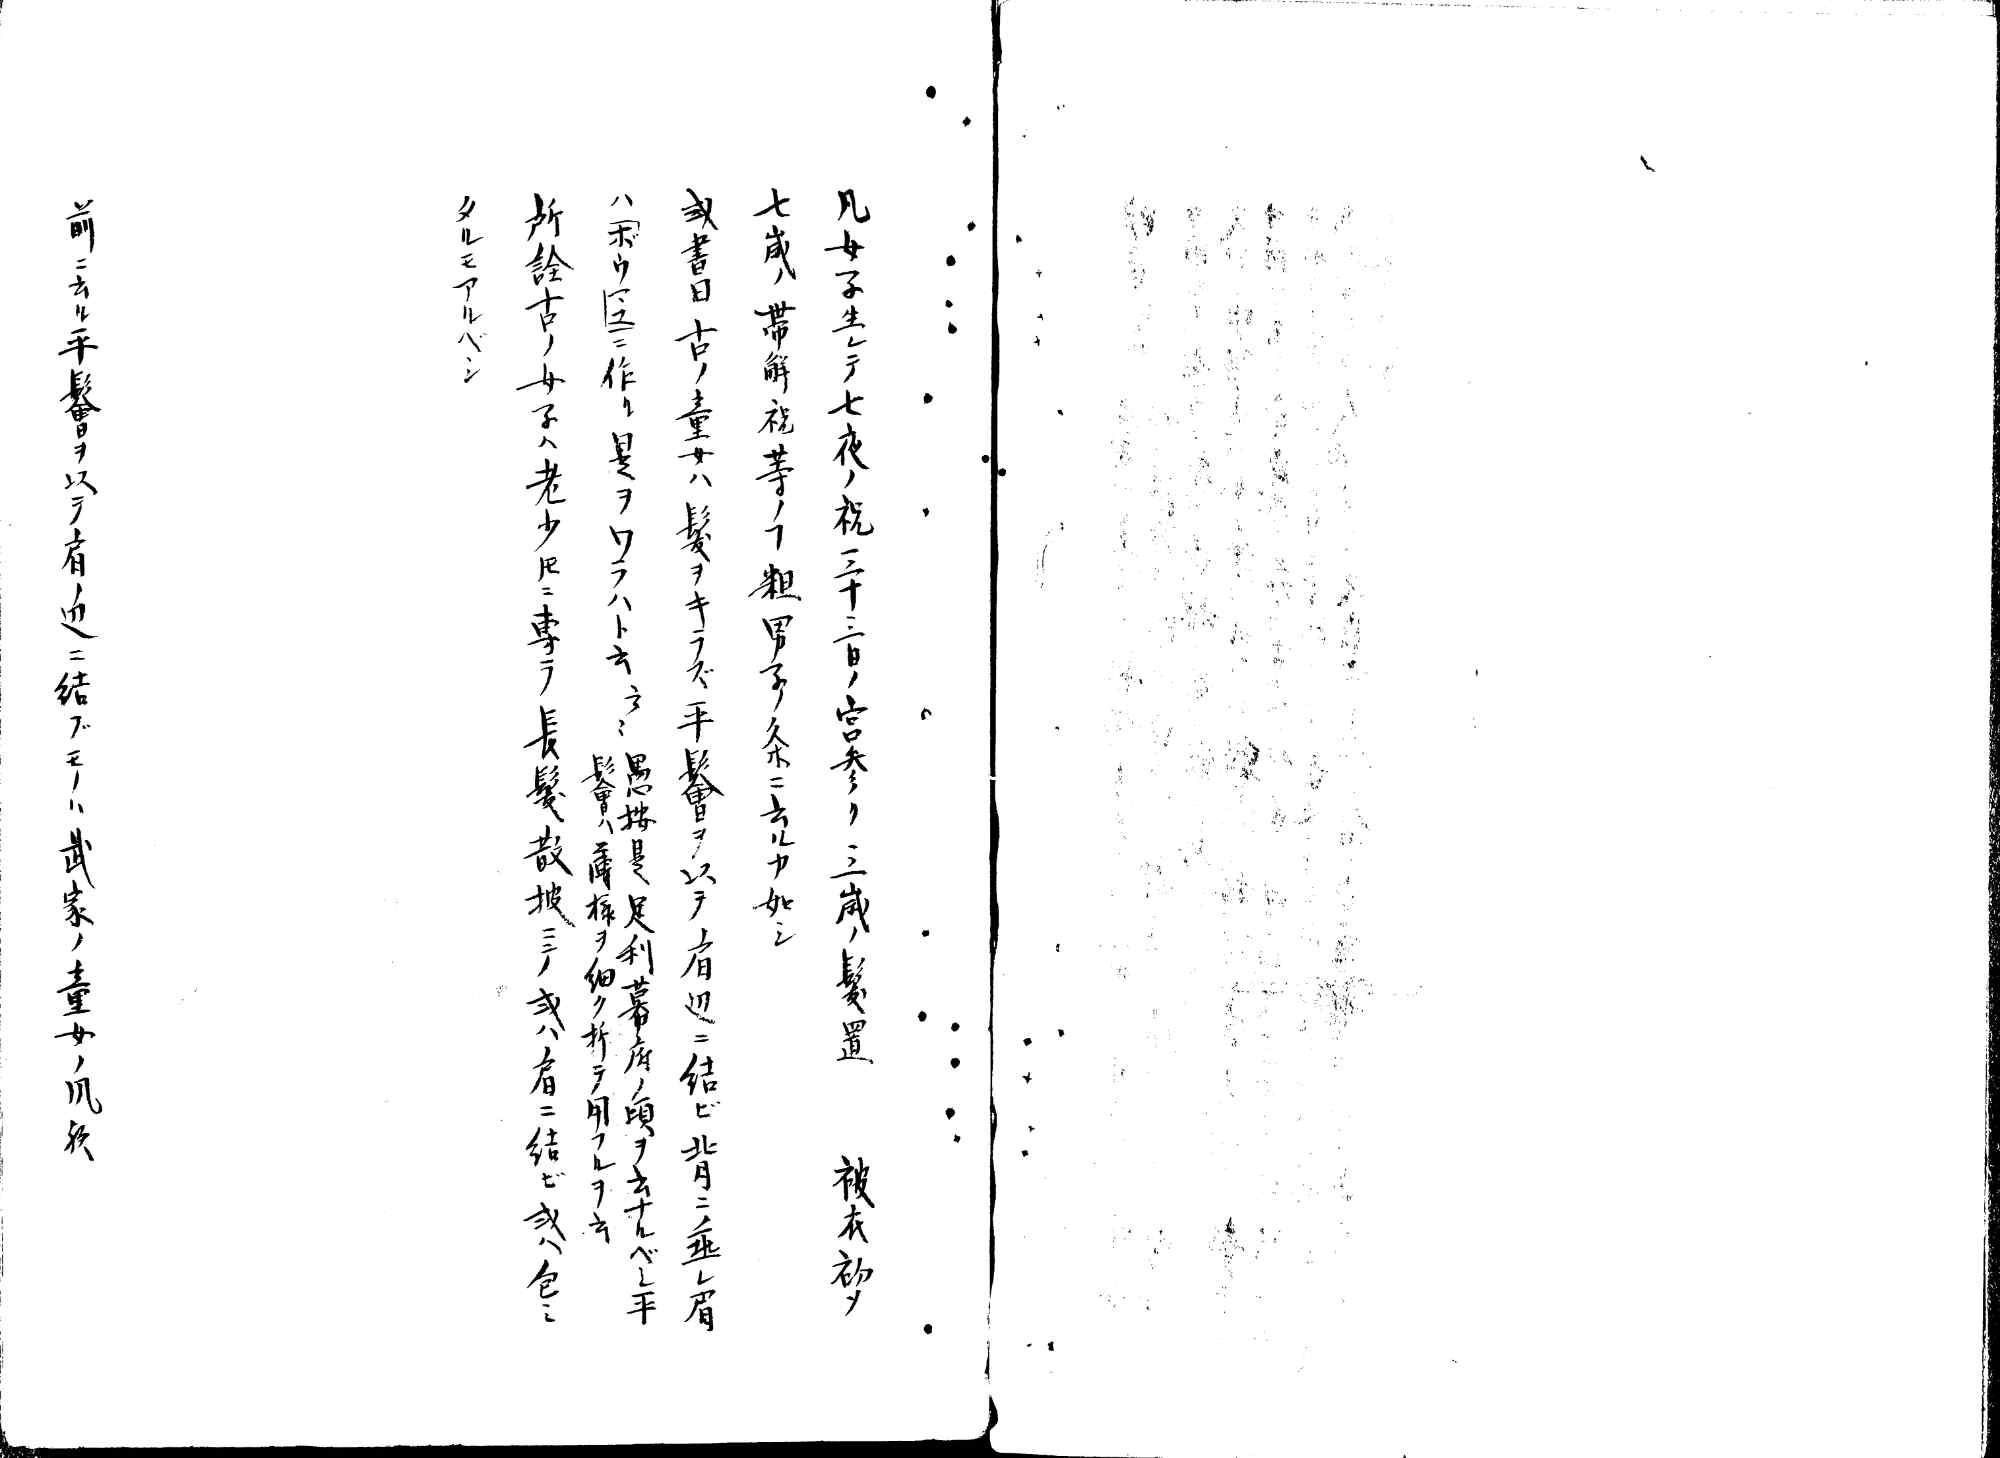 凡女子生レテ七夜ノ祝三十三日ノ宮参リ三歳ノ髪置 被衣初メ
七歳ノ帯解祝等ノヿ粗男子ノ条ニ云ルカ如シ
或書曰古ノ童女ハ髪ヲキラズ平鬠ヲ以テ肩辺ニ結ビ背ニ垂レ眉
ハボウ〳〵ニ作リ是ヲワラハト云云々
愚按是足利幕府ノ頃ヲ云ナルベシ平
鬠ハ薄様ヲ細ク折テ用フルヲ云
所詮古ノ女子ハ老少トモニ専ラ長髪散披ニシテ或ハ肩ニ結ビ或ハ包ミ
タルモアルベシ
前ニ云ル平鬠ヲ以テ肩ノ辺ニ結ブモノハ武家ノ童女ノ風歟